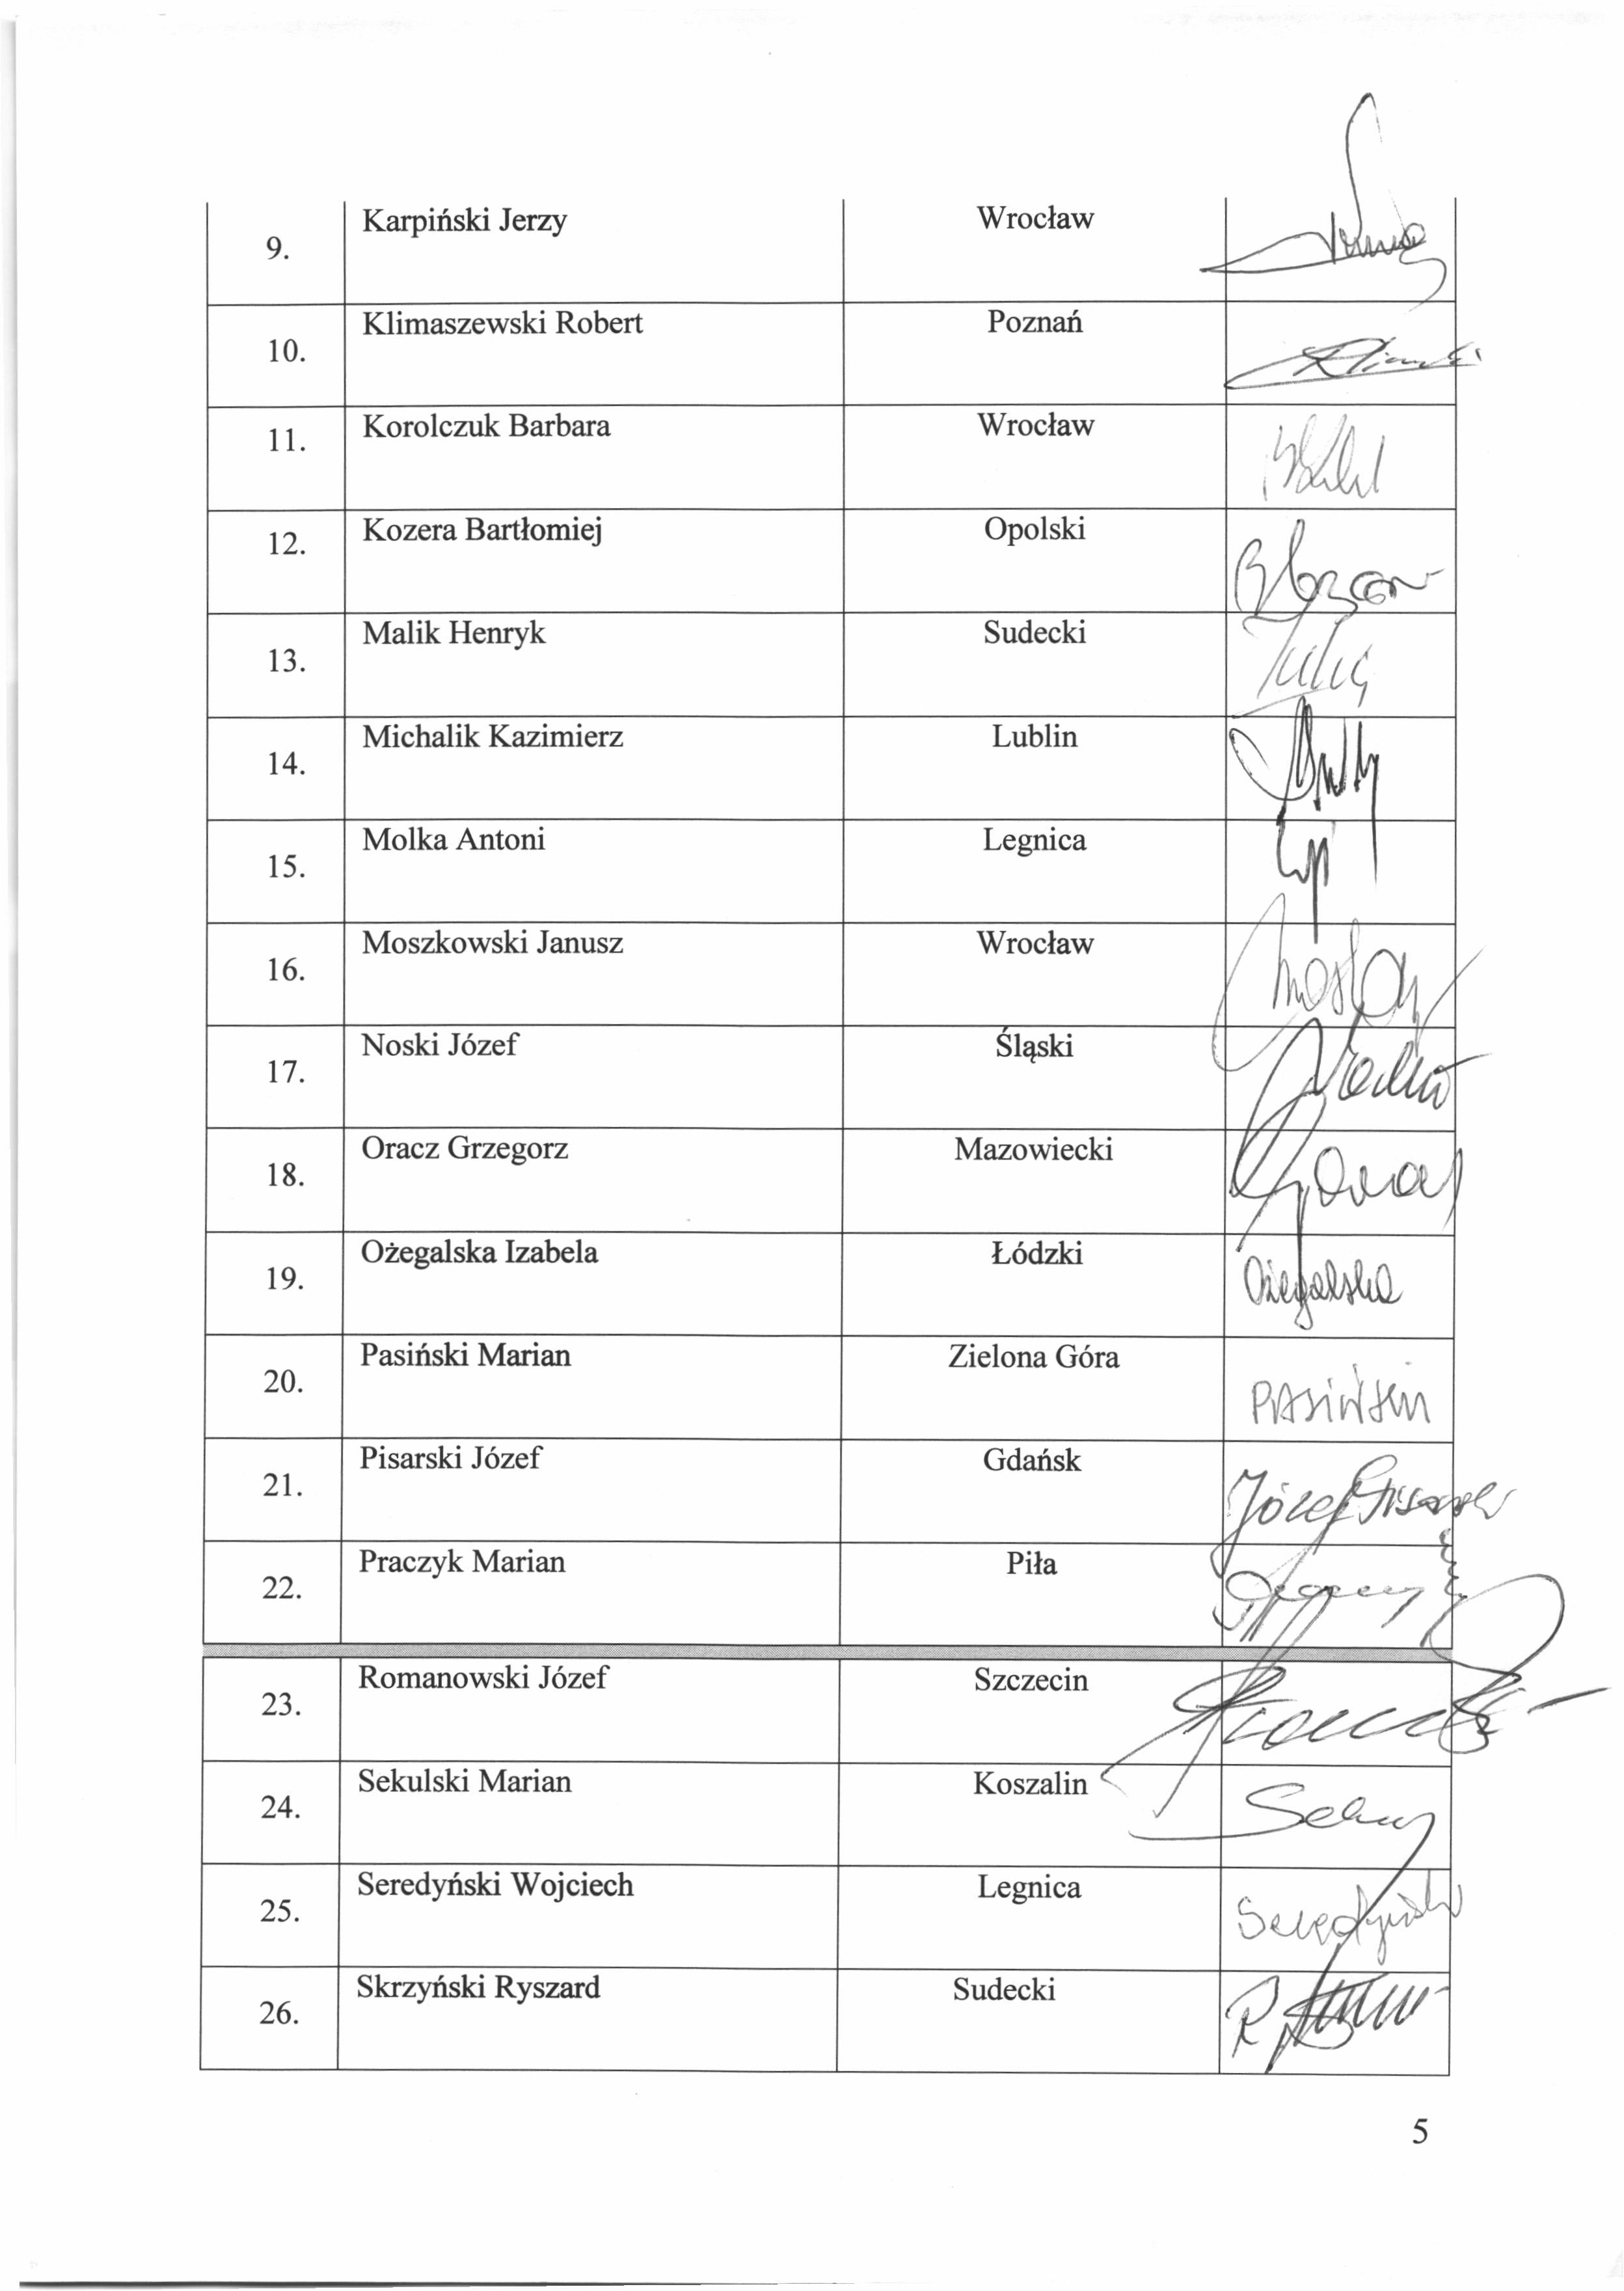 9. Karpiński Jerzy Wrocław
10. Klimaszewski Robert Poznań
11. Korolczuk Barbara Wrocław
12. Kozera Bartłomiej Opolski
13. Malik Henryk Sudecki
14. Michalik Kazimierz Lublin
15. Molka Antoni Legnica
16. Moszkowski Janusz Wrocław
17. Noski Józef Śląski
18. Oracz Grzegorz Mazowiecki
19. Ożegalska Izabela Łódzki Ożegalska
20. Pasiński Marian Zielona Góra PASińSKi
21. Pisarski Józef Gdańsk Józef Pisarski
22. Praczyk Marian Piła
23. Romanowski Józef Szczecin
24. Sekulski Marian Koszalin
25. Seredyński Wojciech Legnica Seredyński
26. Skrzyński Ryszard Sudecki
5